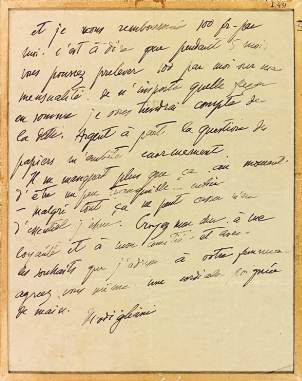 et je vous rembourserai 100 fr par
moi. c'est à dire que pendant 5 moi
vous pourrez prelever 100 par moi sur ma
mensualité. De n'importe quelle façon
en somme je vous tiendrai compte de
la dette. Argent à part la question de
papiers m'embête enormement
Il ne manquait plus que ça au moment
d'être un peu tranquille — enfin
— malgré tout ça ne peut casser rien
d'essentiel j'espere. Croyez mon cher à ma
loyauté et à mon amitié et avec
les souhaits que j'adresse à votre femme
agreez vous même une cordiale poignée
de main.
Modigliani